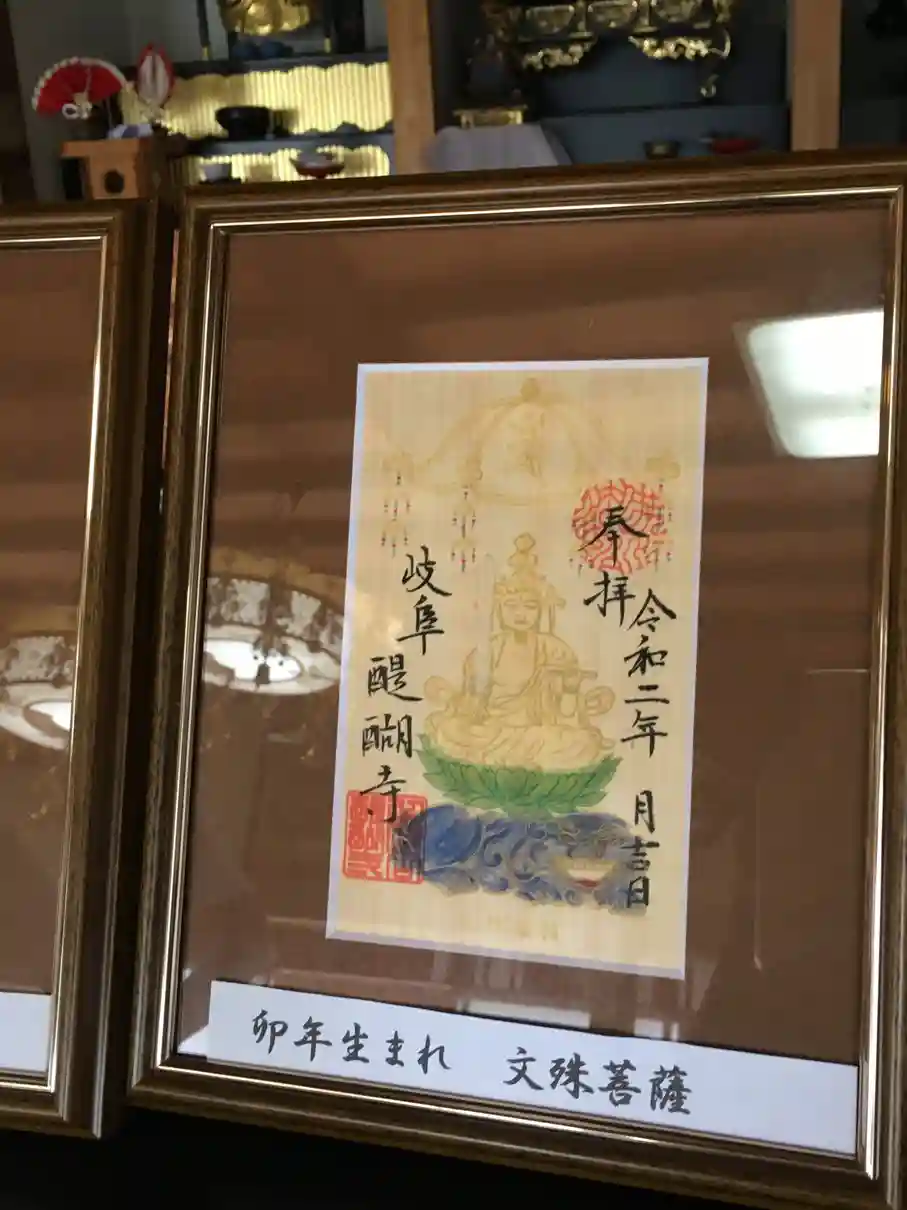 奉拝
令和二年 月吉日
岐阜
醍醐寺
卯年生まれ 文殊菩薩